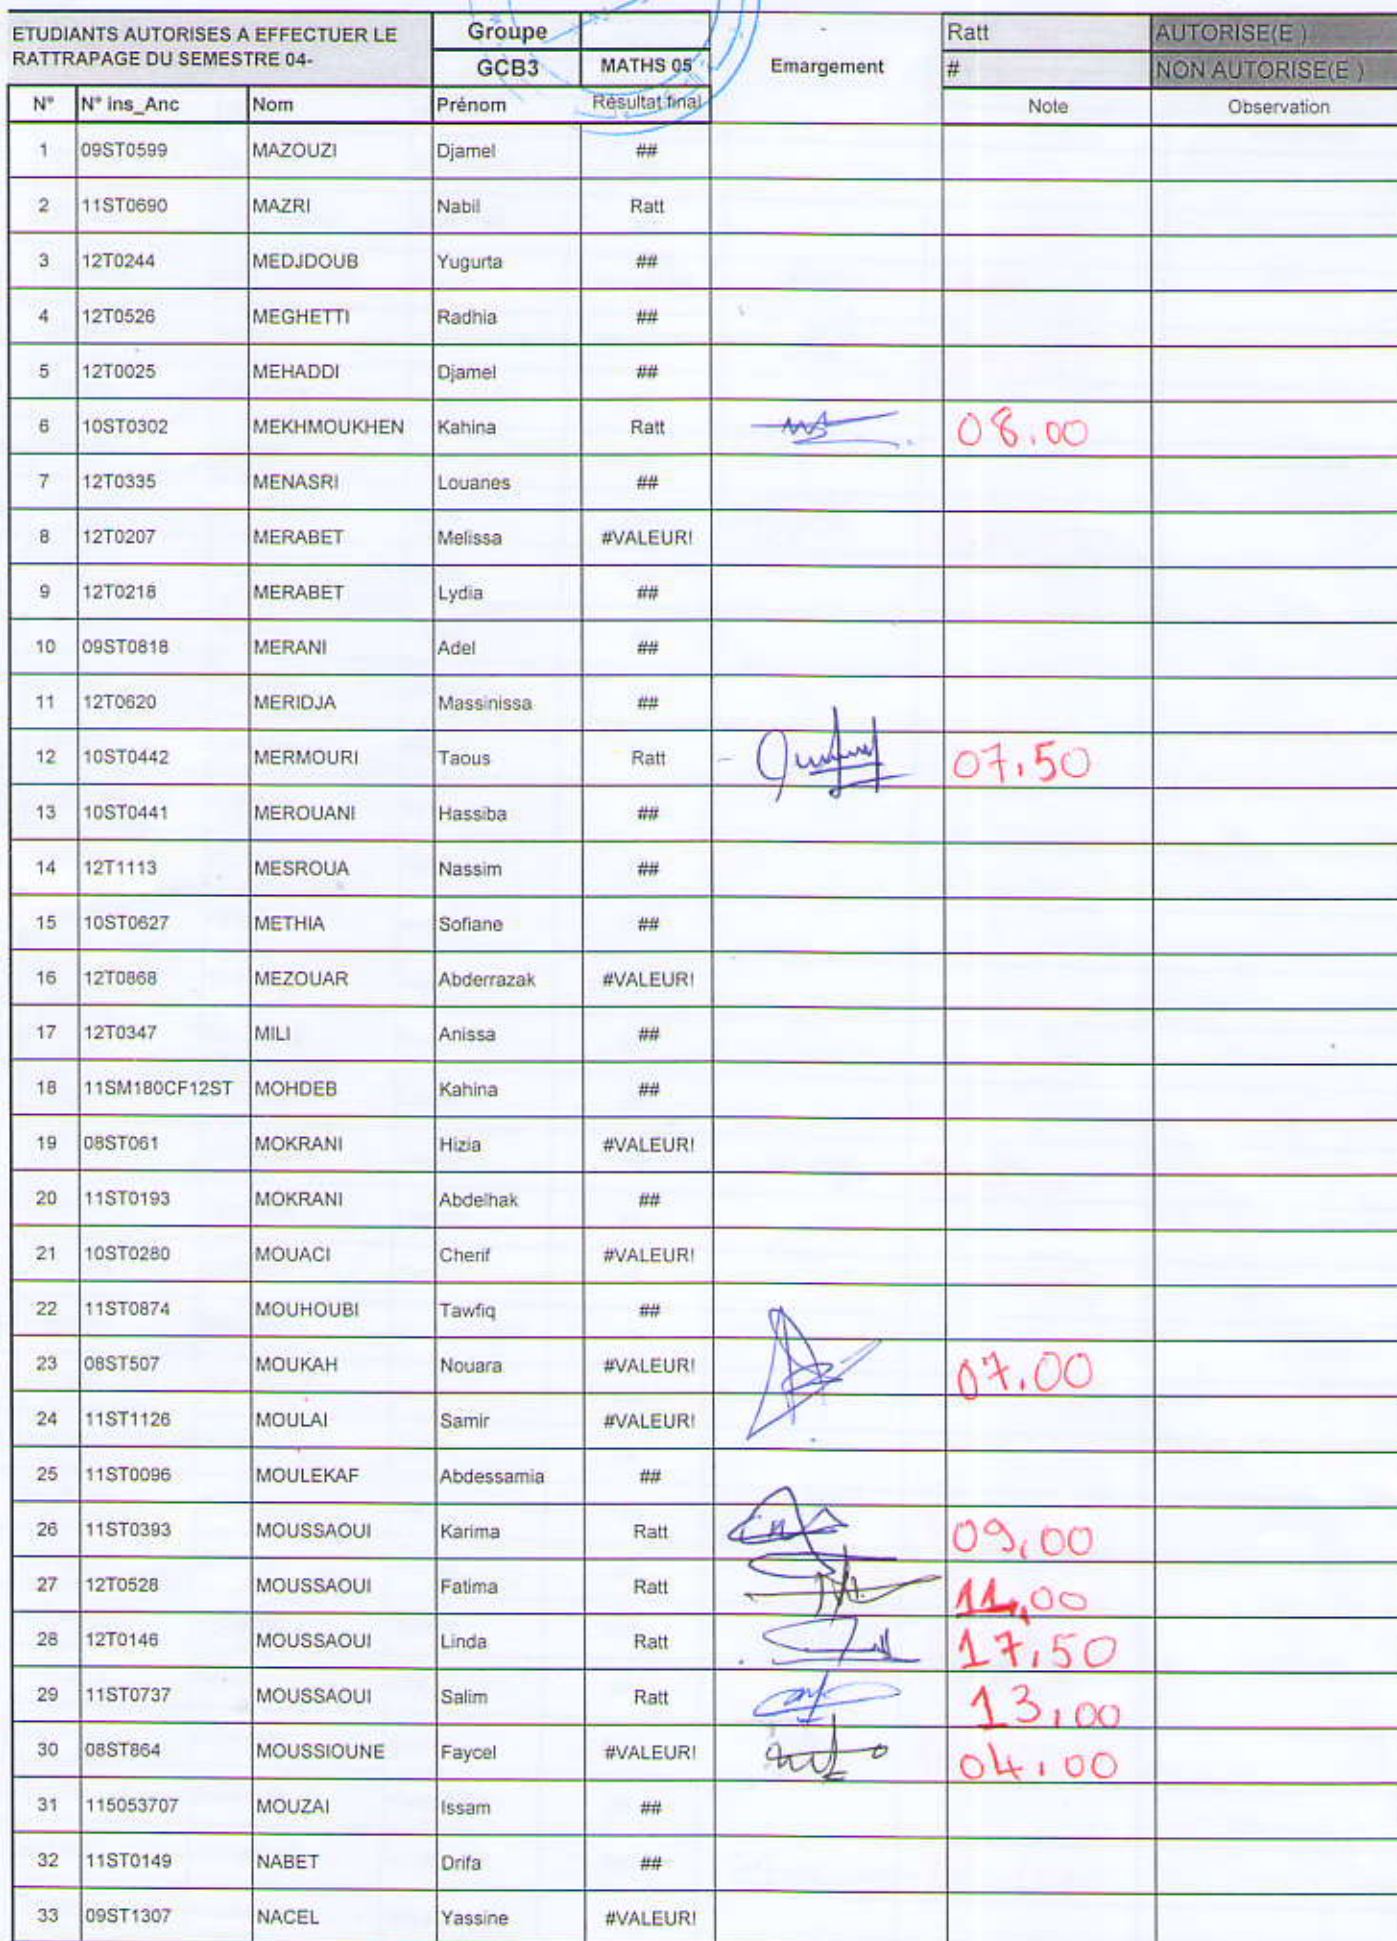 ETUDIANTS AUTORISES A EFFECTUER LE Groupe Ratt AUTORISE(E )
RATTRAPAGE DU SEMESTRE 04- GCB3 MATHS 05 Emargement # NON AUTORISE(E )
N° N° ins_Anc Nom Prénom Résultat final Note Observation
1 09ST0599 MAZOUZI Djamel ##
2 11ST0690 MAZRI Nabil Ratt
3 12T0244 MEDJDOUB Yugurta ##
4 12T0526 MEGHETTI Radhia ##
5 12T0025 MEHADDI Djamel ##
6 10ST0302 MEKHMOUKHEN Kahina Ratt 08,00
7 12T0335 MENASRI Louanes ##
8 12T0207 MERABET Melissa #VALEUR!
9 12T0218 MERABET Lydia ##
10 09ST0818 MERANI Adel ##
11 12T0620 MERIDJA Massinissa ##
12 10ST0442 MERMOURI Taous Ratt 07,50
13 10ST0441 MEROUANI Hassiba ##
14 12T1113 MESROUA Nassim ##
15 10ST0627 METHIA Sofiane ##
16 12T0868 MEZOUAR Abderrazak #VALEUR!
17 12T0347 MILI Anissa ##
18 11SM180CF12ST MOHDEB Kahina ##
19 08ST061 MOKRANI Hizia #VALEUR!
20 11ST0193 MOKRANI Abdelhak ##
21 10ST0280 MOUACI Cherif #VALEUR!
22 11ST0874 MOUHOUBI Tawfiq ##
23 08ST507 MOUKAH Nouara #VALEUR! 07,00
24 11ST1126 MOULAI Samir #VALEUR!
25 11ST0096 MOULEKAF Abdessamia ##
26 11ST0393 MOUSSAOUI Karima Ratt 09,00
27 12T0528 MOUSSAOUI Fatima Ratt 11,00
28 12T0146 MOUSSAOUI Linda Ratt 17,50
29 11ST0737 MOUSSAOUI Salim Ratt 13,00
30 08ST864 MOUSSIOUNE Faycel #VALEUR! 04,00
31 115053707 MOUZAI Issam ##
32 11ST0149 NABET Drifa ##
33 09ST1307 NACEL Yassine #VALEUR!